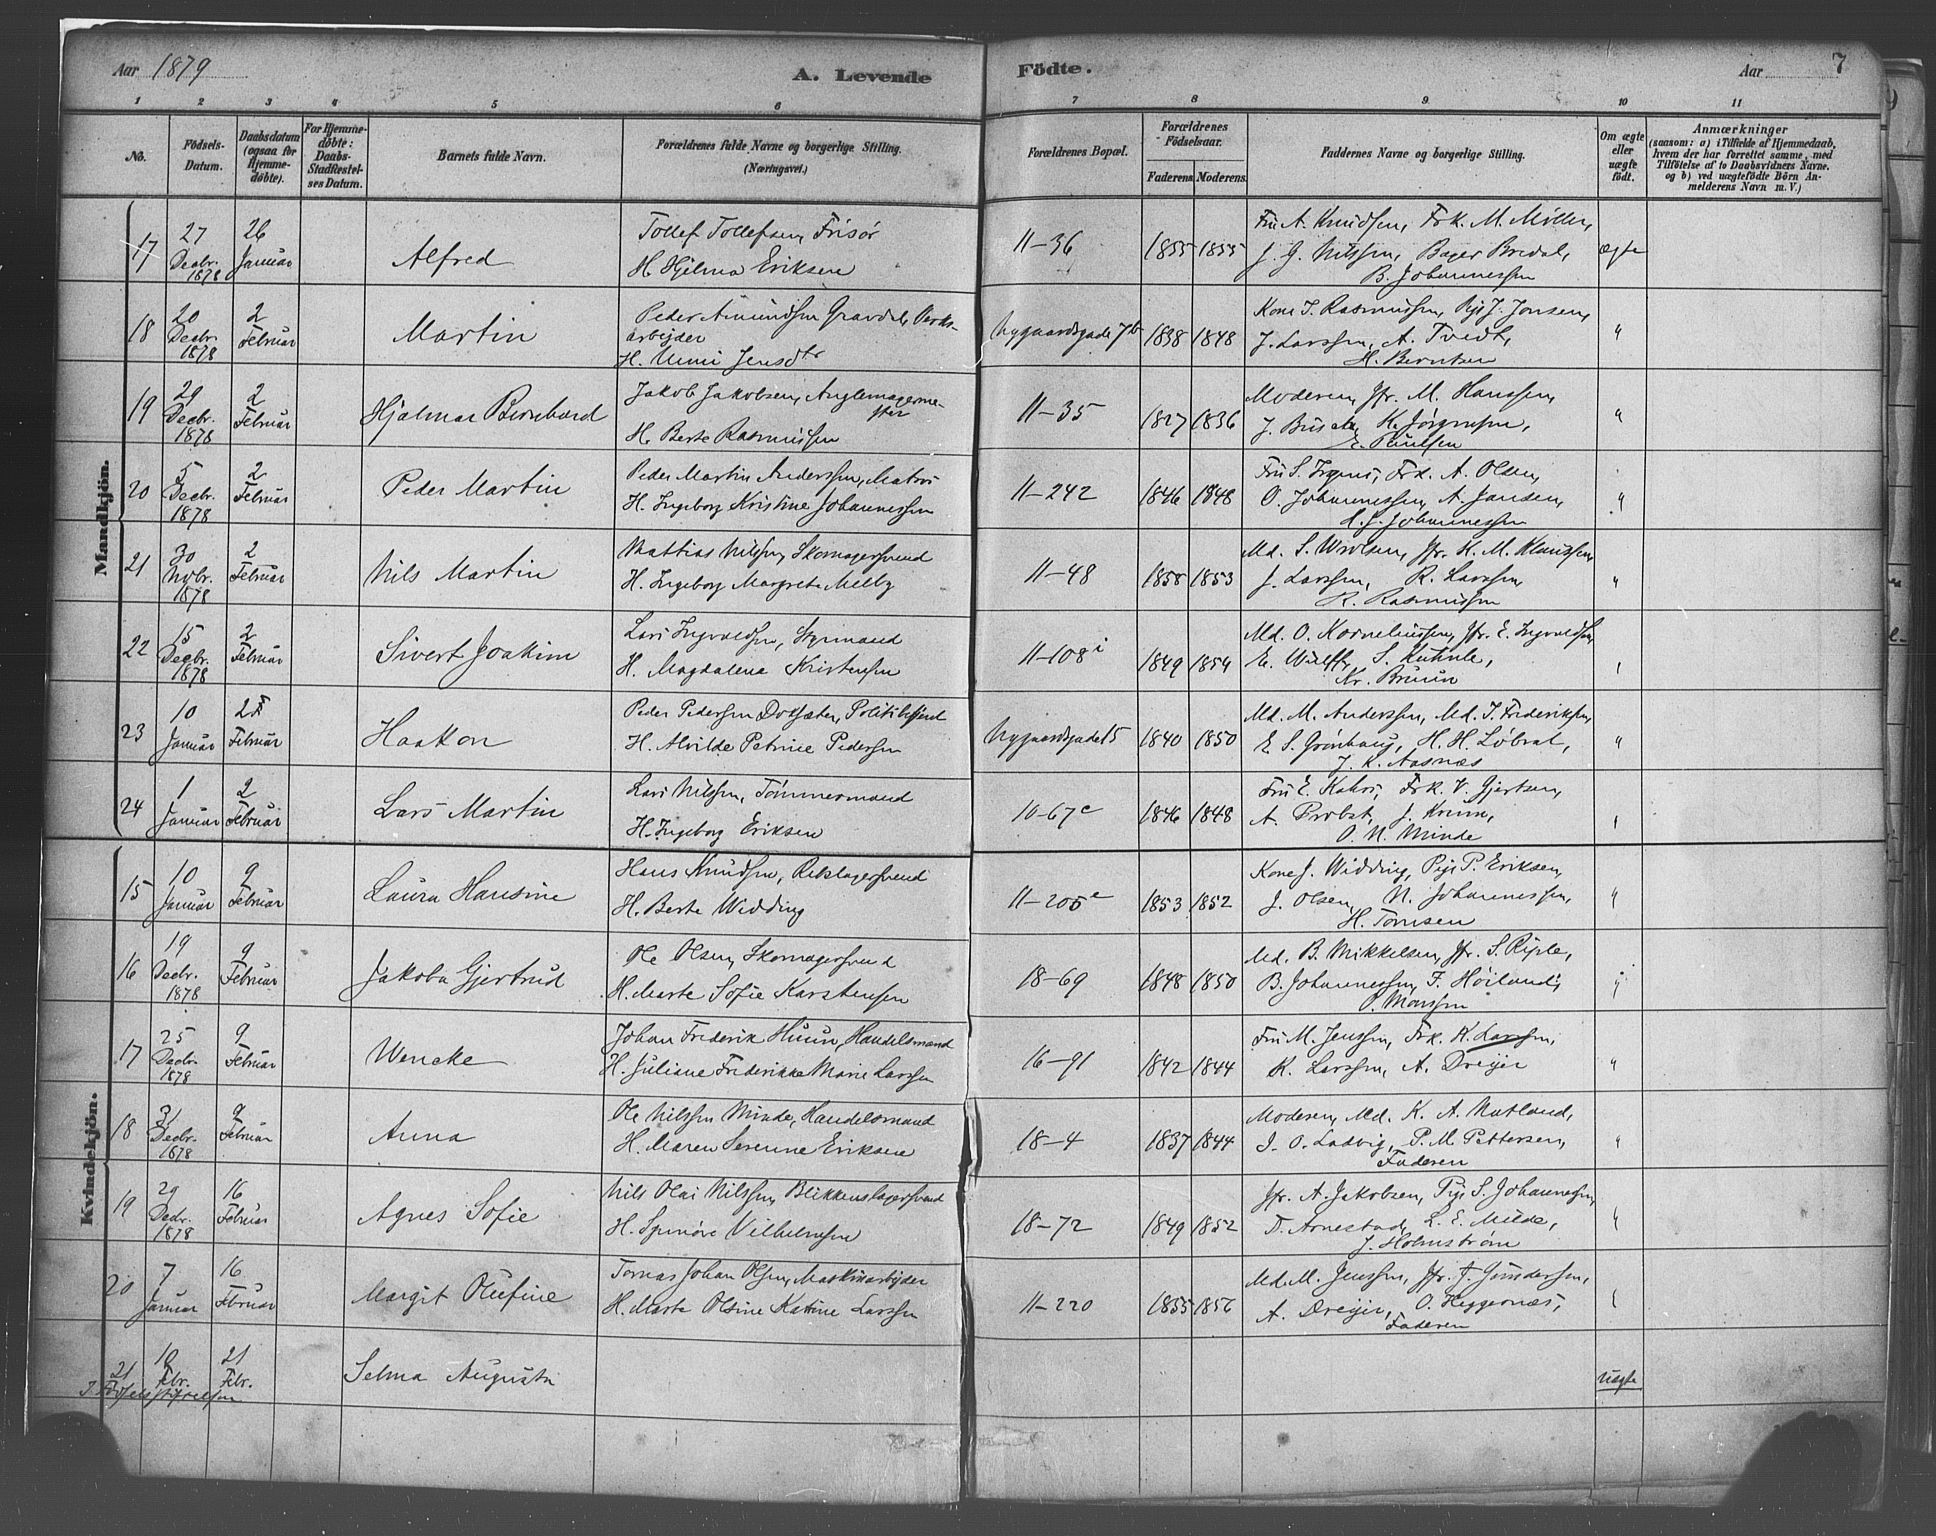 Aar 1879 A. Levende Födte. Aar 7
1 2 3 4 5 6 7 8 9 10 11
No. Födsels-Datum. Daabsdatum (ogsaa for Hjemme-döbte). For Hjemme-döbte: Daabs-Stadfæstel-ses Datum. Barnets fulde Navn. Forældrenes fulde Navne og borgerlige Stilling. (Næringsvei.) Forældrenes Bopæl. Forældrenes Födselsaar. Faderens Moderens Faddernes Navne og borgerlige Stilling. Om ægte eller uægte födt. Anmærkninger (saasom: a) i Tilfælde af Hjemmedaab, hvem der har forrettet samme, med Tilföielse af to Daabsvidners Navne, og b) ved uægtefödte Börn An-melderens Navn m. V.)
Mandkjön.
17 27 Decbr. 1878 26 Januar Alfred Tollef Tollefsen, Frisør
H. Hjelma Eriksen 11-36 1855 1855 Fru A. Knudsen, Frk. M. Møller,
J. G. Nilssen, Bager Bredal,
B. Johannessen ægte
18 20 Decbr. 1878 2 Februar Martin Peder Amundsen Gravdal, Værks-
arbejder
H. Unni Jensdtr Nygaardsgade 7b 1838 1848 Kone I. Rasmussen, Pige J. Jonsen,
J. Larssen, A. Tvedt,
H. Berntsen "
19 29 Decbr. 1878 2 Februar Hjalmar Bernhard Jakob Jakobsen, Anglemagerme-
ster
H. Berte Rasmussen 11-35 1827 1836 Moderen, Jfr. M. Hanssen,
J. Busch, K. Jørgensen,
E. Paulsen "
20 5 Decbr. 1878 2 Februar Peder Martin Peder Martin Anderssen, Matros
H. Ingeborg Kristine Johannessen 11-242 1846 1848 Fru S. Irgens, Frk. A. Olsen,
O. Johannessen, A. Jansen,
Johannessen "
21 30 Novbr. 1878 2 Februar Nils Martin Mattias Nilssen, Skomagersvend
H. Ingeborg Margrete Melby 11-48 1858 1853 Md. S. Wolsen, Jfr. K. M. Klaussen,
J. Larssen, R. Larssen,
R. Rasmussen "
22 15 Decbr. 1878 2 Februar Sivert Joakim Lars Ingvaldsen, Styrmand
H. Magdalena Kristensen 11-108i 1849 1854 Md. O. Korneliussen, Jfr. E. Ingvaldsen,
E. Wulff, S. Kuhnle,
Kr. Bruun
23 10 Januar Februar Haakon Peder Pedersen Politibetjent
H. Alvilde Petrine Pedersen Nygaardsgade 15 1840 1850 Md. M. Anderssen, Md. I. Frederiksen,
E. S. Grønhaug, H. H. Løbrat,
J. K. Aasnæs "
24 1 Januar 2 Februar Lars Martin Lars Nilssen, Tømmermand
H. Ingeborg Eriksen 10-67c 1846 1848 Fru E. Kahrs, Frk. V. Gjertsen,
A. Probst, J. Krum,
O. N. Minde
Kvindekjön.
15 10 Januar 9 Februar Laura Hansine Hans Knudsen, Rebslagersvend
H. Berte Widding 11-205e 1853 1852 Kone J. Widding, Pige P. Eriksen,
J. Olsen, N. Johannessen,
H. Tomsen "
16 19 Decbr. 1878 9 Februar Jakoba Gjertrud Ole Olsen, Skomagersvend
H. Marta Sofie Karstensen 18-69 1848 1850 Md. B. Mikkelsen, Jfr. S. Riple,
B. Johannessen, F. Høiland,
O. Monssen "
17 25 Decbr. 1878 9 Februar Wencke Johan Frederik Huun, Handelsmand
H. Juliane Frederikke Marie Larssen 16-91 1842 1844 Fru M. Jenssen, Frk. K. Larssen,
K. Larssen, A. Dreyer "
18 31 Decbr. 1878 9 Februar Anna Ole Nilssen Minde, Handelsmand
H. Maren Serenne Eriksen 18-4 1837 1844 Moderen, Md. K. A. Natland,
I. O. Ladvig, P. M. Pettersen,
Faderen "
19 29 Decbr. 1878 16 Februar Agnes Sofie Nils Olai Nilssen, Blikkenslagersvend
H. Synnøve Vilhelmsen 18-72 1849 1852 Jfr. A. Jakobsen, Pige S. Johannessen,
T. Arnestad, L. E. Milde,
J. Holmstrøm "
20 7 Januar 16 Februar Margit Olufine Tomas Johan Olsen, Maskinarbejder
H. Marta Olsine Katrine Larssen 11-220 1855 1856 Md. M. Jenssen, Jfr. J. Gundersen,
A. Dreyer, O. Heggernæs,
Faderen
21 10 Febr. 21 Febr. Selma Augusta uægte
I Fødselsstiftelsen